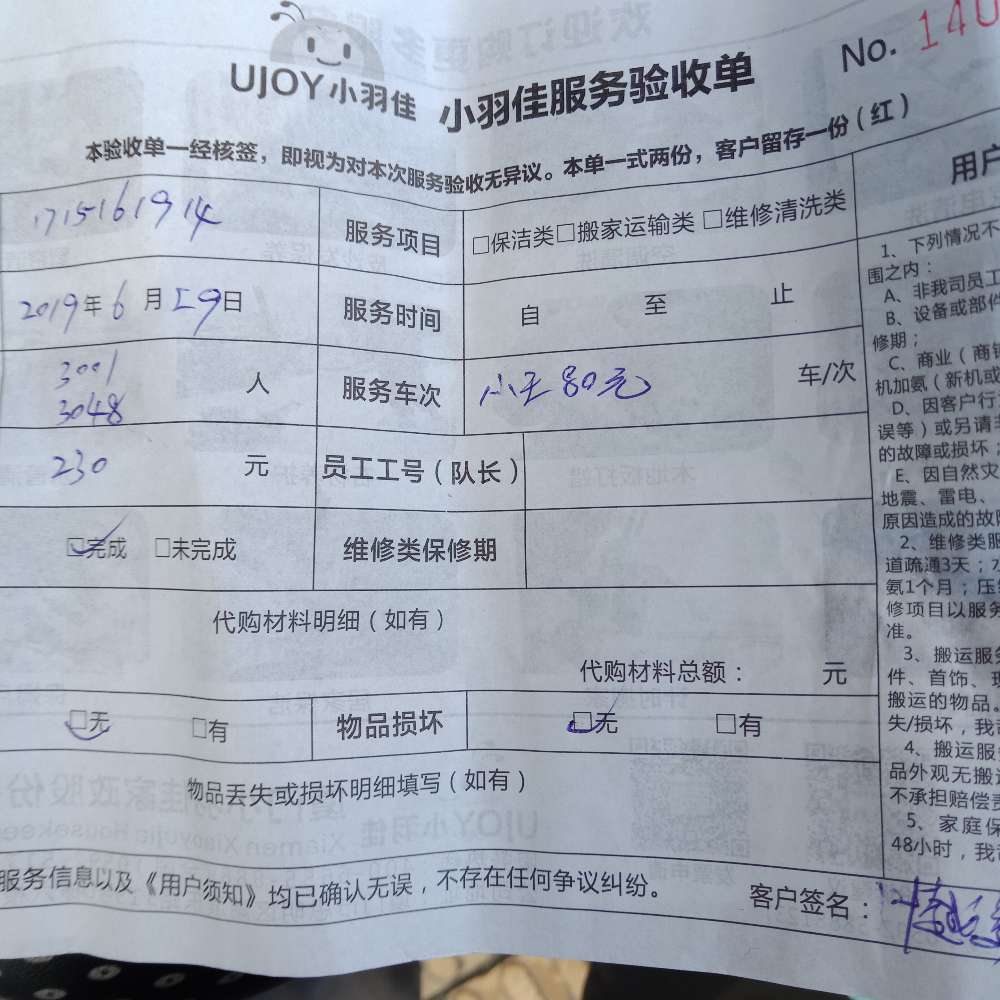 UJOY小羽佳 小羽佳服务验收单 No. 140
本验收单一经核签，即视为对本次服务验收无异议。本单一式两份，客户留存一份（红）
1715161914 服务项目 □保洁类□搬家运输类 □维修清洗类
2019年6月29日 服务时间 自 至 止
3001
3048 人 服务车次 小王80元 车/次
230 元 员工工号（队长）
□完成 □未完成 维修类保修期
代购材料明细（如有）
代购材料总额： 元
□无 □有 物品损坏 □无 □有
物品丢失或损坏明细填写（如有）
服务信息以及《用户须知》均已确认无误，不存在任何争议纠纷。
客户签名：
用户
1、下列情况不
围之内：
A、非我司员工
B、设备或部件
修期；
C、商业（商铺
机加氨（新机或
D、因客户行
误等）或另请非
的故障或损坏；
E、因自然灾
地震、雷电、
原因造成的故障
2、维修类服
道疏通3天；水
氨1个月；压缩
修项目以服务
准。
3、搬运服务
件、首饰、现
搬运的物品。
失/损坏，我
4、搬运服务
品外观无搬运
不承担赔偿责
5、家庭保
48小时，我